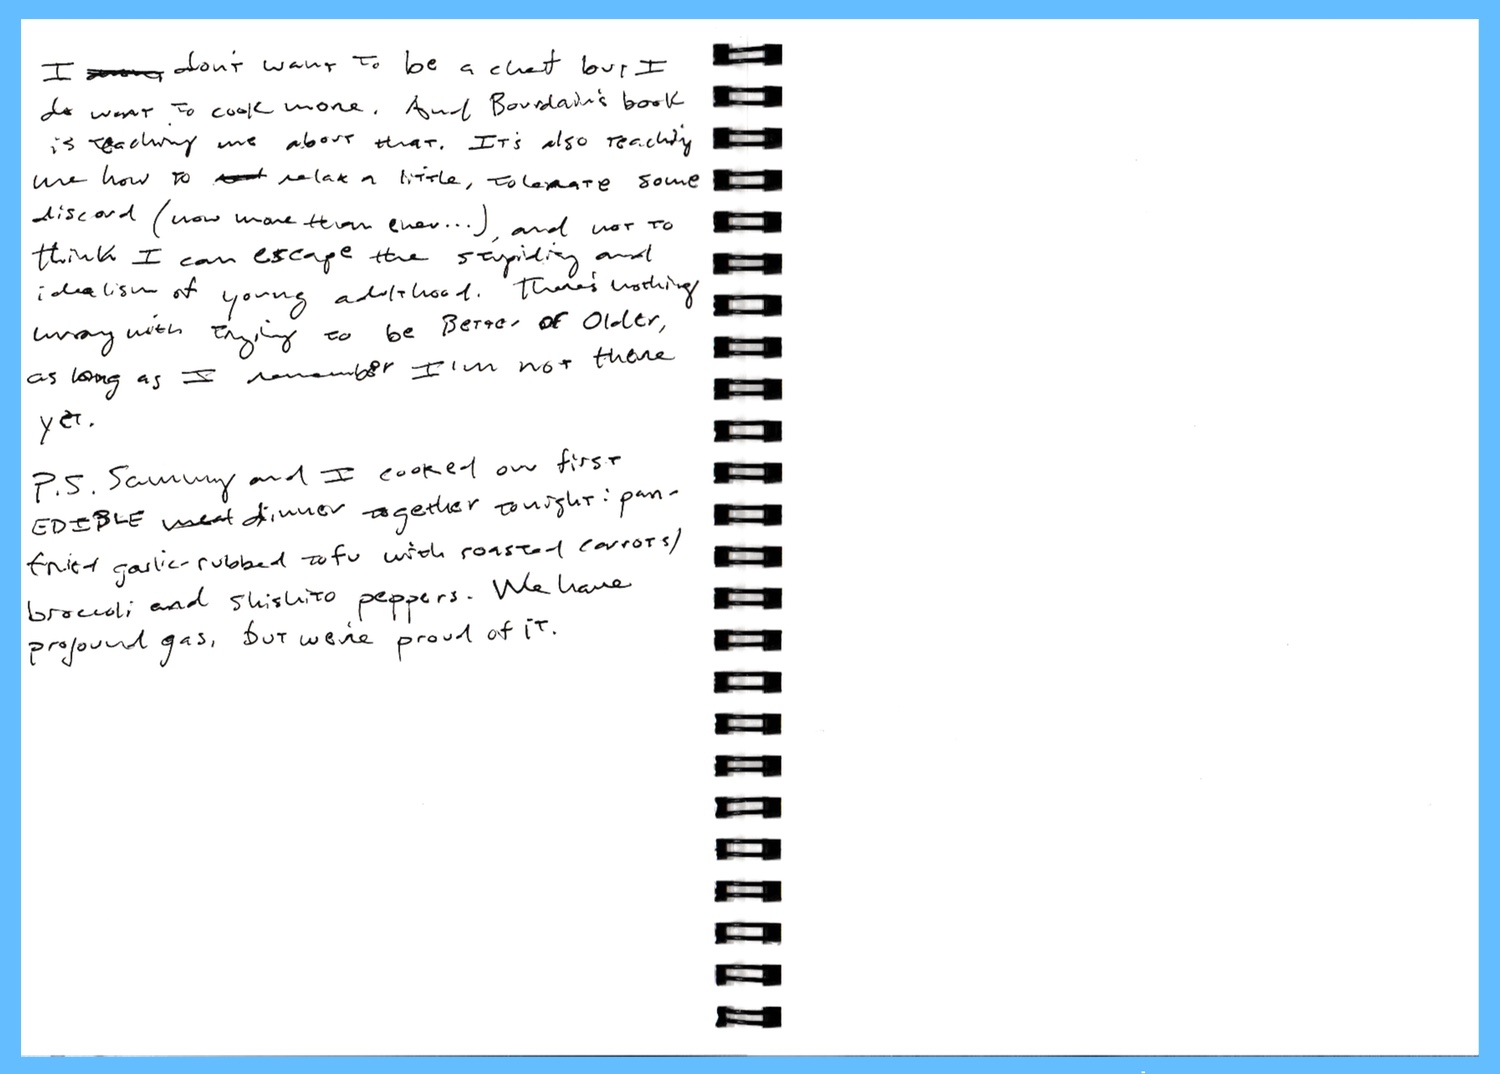 I don't want to be a chef but I
do want to cook more. And Bourdain's book
is teaching me about that. It's also teaching
me how to relax a little, tolerate some
discord (now more than ever...), and not to
think I can escape the stupidity and
idealism of young adulthood. There's nothing
wrong with trying to be Better or Older,
as long as I remember I'm not there
yet.
P.S. Sammy and I cooked our first
EDIBLE meat dinner together tonight: pan-
fried garlic-rubbed tofu with roasted carrots/
broccoli and shishito peppers. We have
profound gas, but we're proud of it.